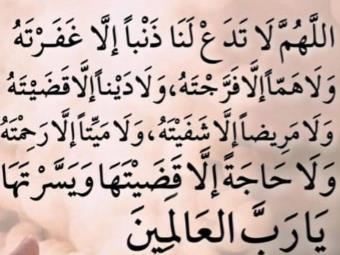 اللَّهُمَّ لَا تَدَعْ لَنَا ذَنْباً إِلَّا غَفَرْتَهُ
وَلَا هَمّاً إِلَّا فَرَّجْتَهُ، وَلَا دَيْناً إِلَّا قَضَيْتَهُ
وَلَا مَرِيضاً إِلَّا شَفَيْتَهُ، وَلَا مَيِّتاً إِلَّا رَحِمْتَهُ
وَلَا حَاجَةً إِلَّا قَضَيْتَهَا وَيَسَّرْتَهَا
يَا رَبَّ العَالَمِينَ